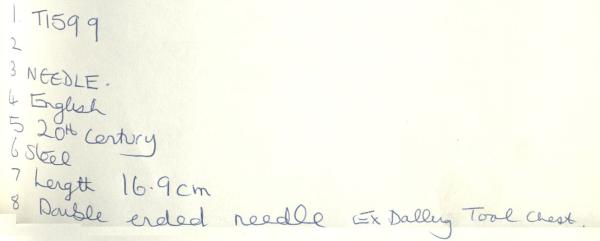 1 T1599
2
3 NEEDLE.
4 English
5 20th Century
6 Steel
7 Length 16.9cm
8 Double ended needle Ex Dalley Tool Chest.